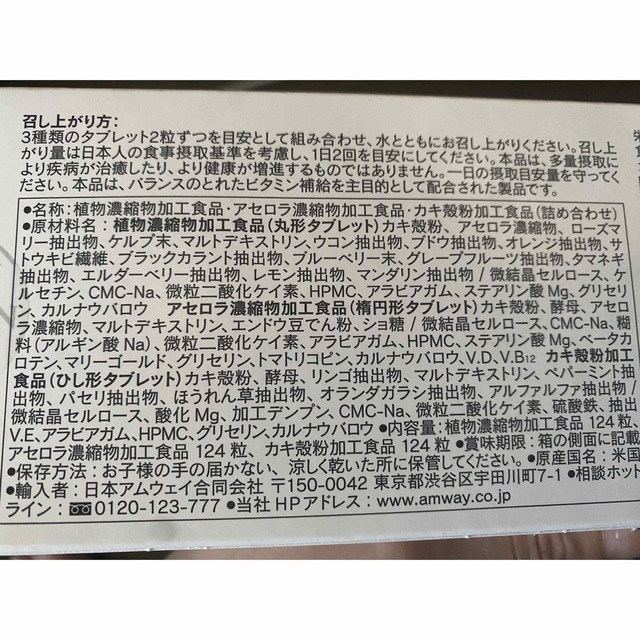 召し上がり方:
3種類のタブレット2粒ずつを目安として組み合わせ、水とともにお召し上がりください。召し上
がり量は日本人の食事摂取基準を考慮し、1日2回を目安にしてください。本品は、多量摂取に
より疾病が治癒したり、より健康が増進するものではありません。一日の摂取目安量を守ってく
ださい。本品は、バランスのとれたビタミン補給を主目的として配合された製品です。
●名称:植物濃縮物加工食品・アセロラ濃縮物加工食品・カキ殻粉加工食品(詰め合わせ)
●原材料名:植物濃縮物加工食品(丸形タブレット)カキ殻粉、アセロラ濃縮物、ローズマ
リー抽出物、ケルプ末、マルトデキストリン、ウコン抽出物、ブドウ抽出物、オレンジ抽出物、サ
トウキビ繊維、ブラックカラント抽出物、ブルーベリー末、グレープフルーツ抽出物、タマネギ
抽出物、エルダーベリー抽出物、レモン抽出物、マンダリン抽出物/微結晶セルロース、ケ
ルセチン、CMC-Na、微粒二酸化ケイ素、HPMC、アラビアガム、ステアリン酸Mg、グリセリ
ン、カルナウバロウ アセロラ濃縮物加工食品(楕円形タブレット)カキ殻粉、酵母、アセロ
ラ濃縮物、マルトデキストリン、エンドウ豆でん粉、ショ糖/微結晶セルロース、CMC-Na、糊
料(アルギン酸Na)、微粒二酸化ケイ素、アラビアガム、HPMC、ステアリン酸Mg、ベータカ
ロテン、マリーゴールド、グリセリン、トマトリコピン、カルナウバロウ、V.D、V.B12 カキ殻粉加工
食品(ひし形タブレット)カキ殻粉、酵母、リンゴ抽出物、マルトデキストリン、ペパーミント抽
出物、パセリ抽出物、ほうれん草抽出物、オランダガラシ抽出物、アルファルファ抽出物/
微結晶セルロース、酸化Mg、加工デンプン、CMC-Na、微粒二酸化ケイ素、硫酸鉄、抽出
V.E、アラビアガム、HPMC、グリセリン、カルナウバロウ ●内容量:植物濃縮物加工食品124粒、
アセロラ濃縮物加工食品124粒、カキ殻粉加工食品124粒 ●賞味期限:箱の側面に記載
●保存方法:お子様の手の届かない、涼しく乾いた所に保管してください。●原産国名:米国
●輸入者:日本アムウェイ合同会社 〒150-0042 東京都渋谷区宇田川町7-1 ●相談ホット
ライン:0120-123-777 ●当社HPアドレス:www.amway.co.jp